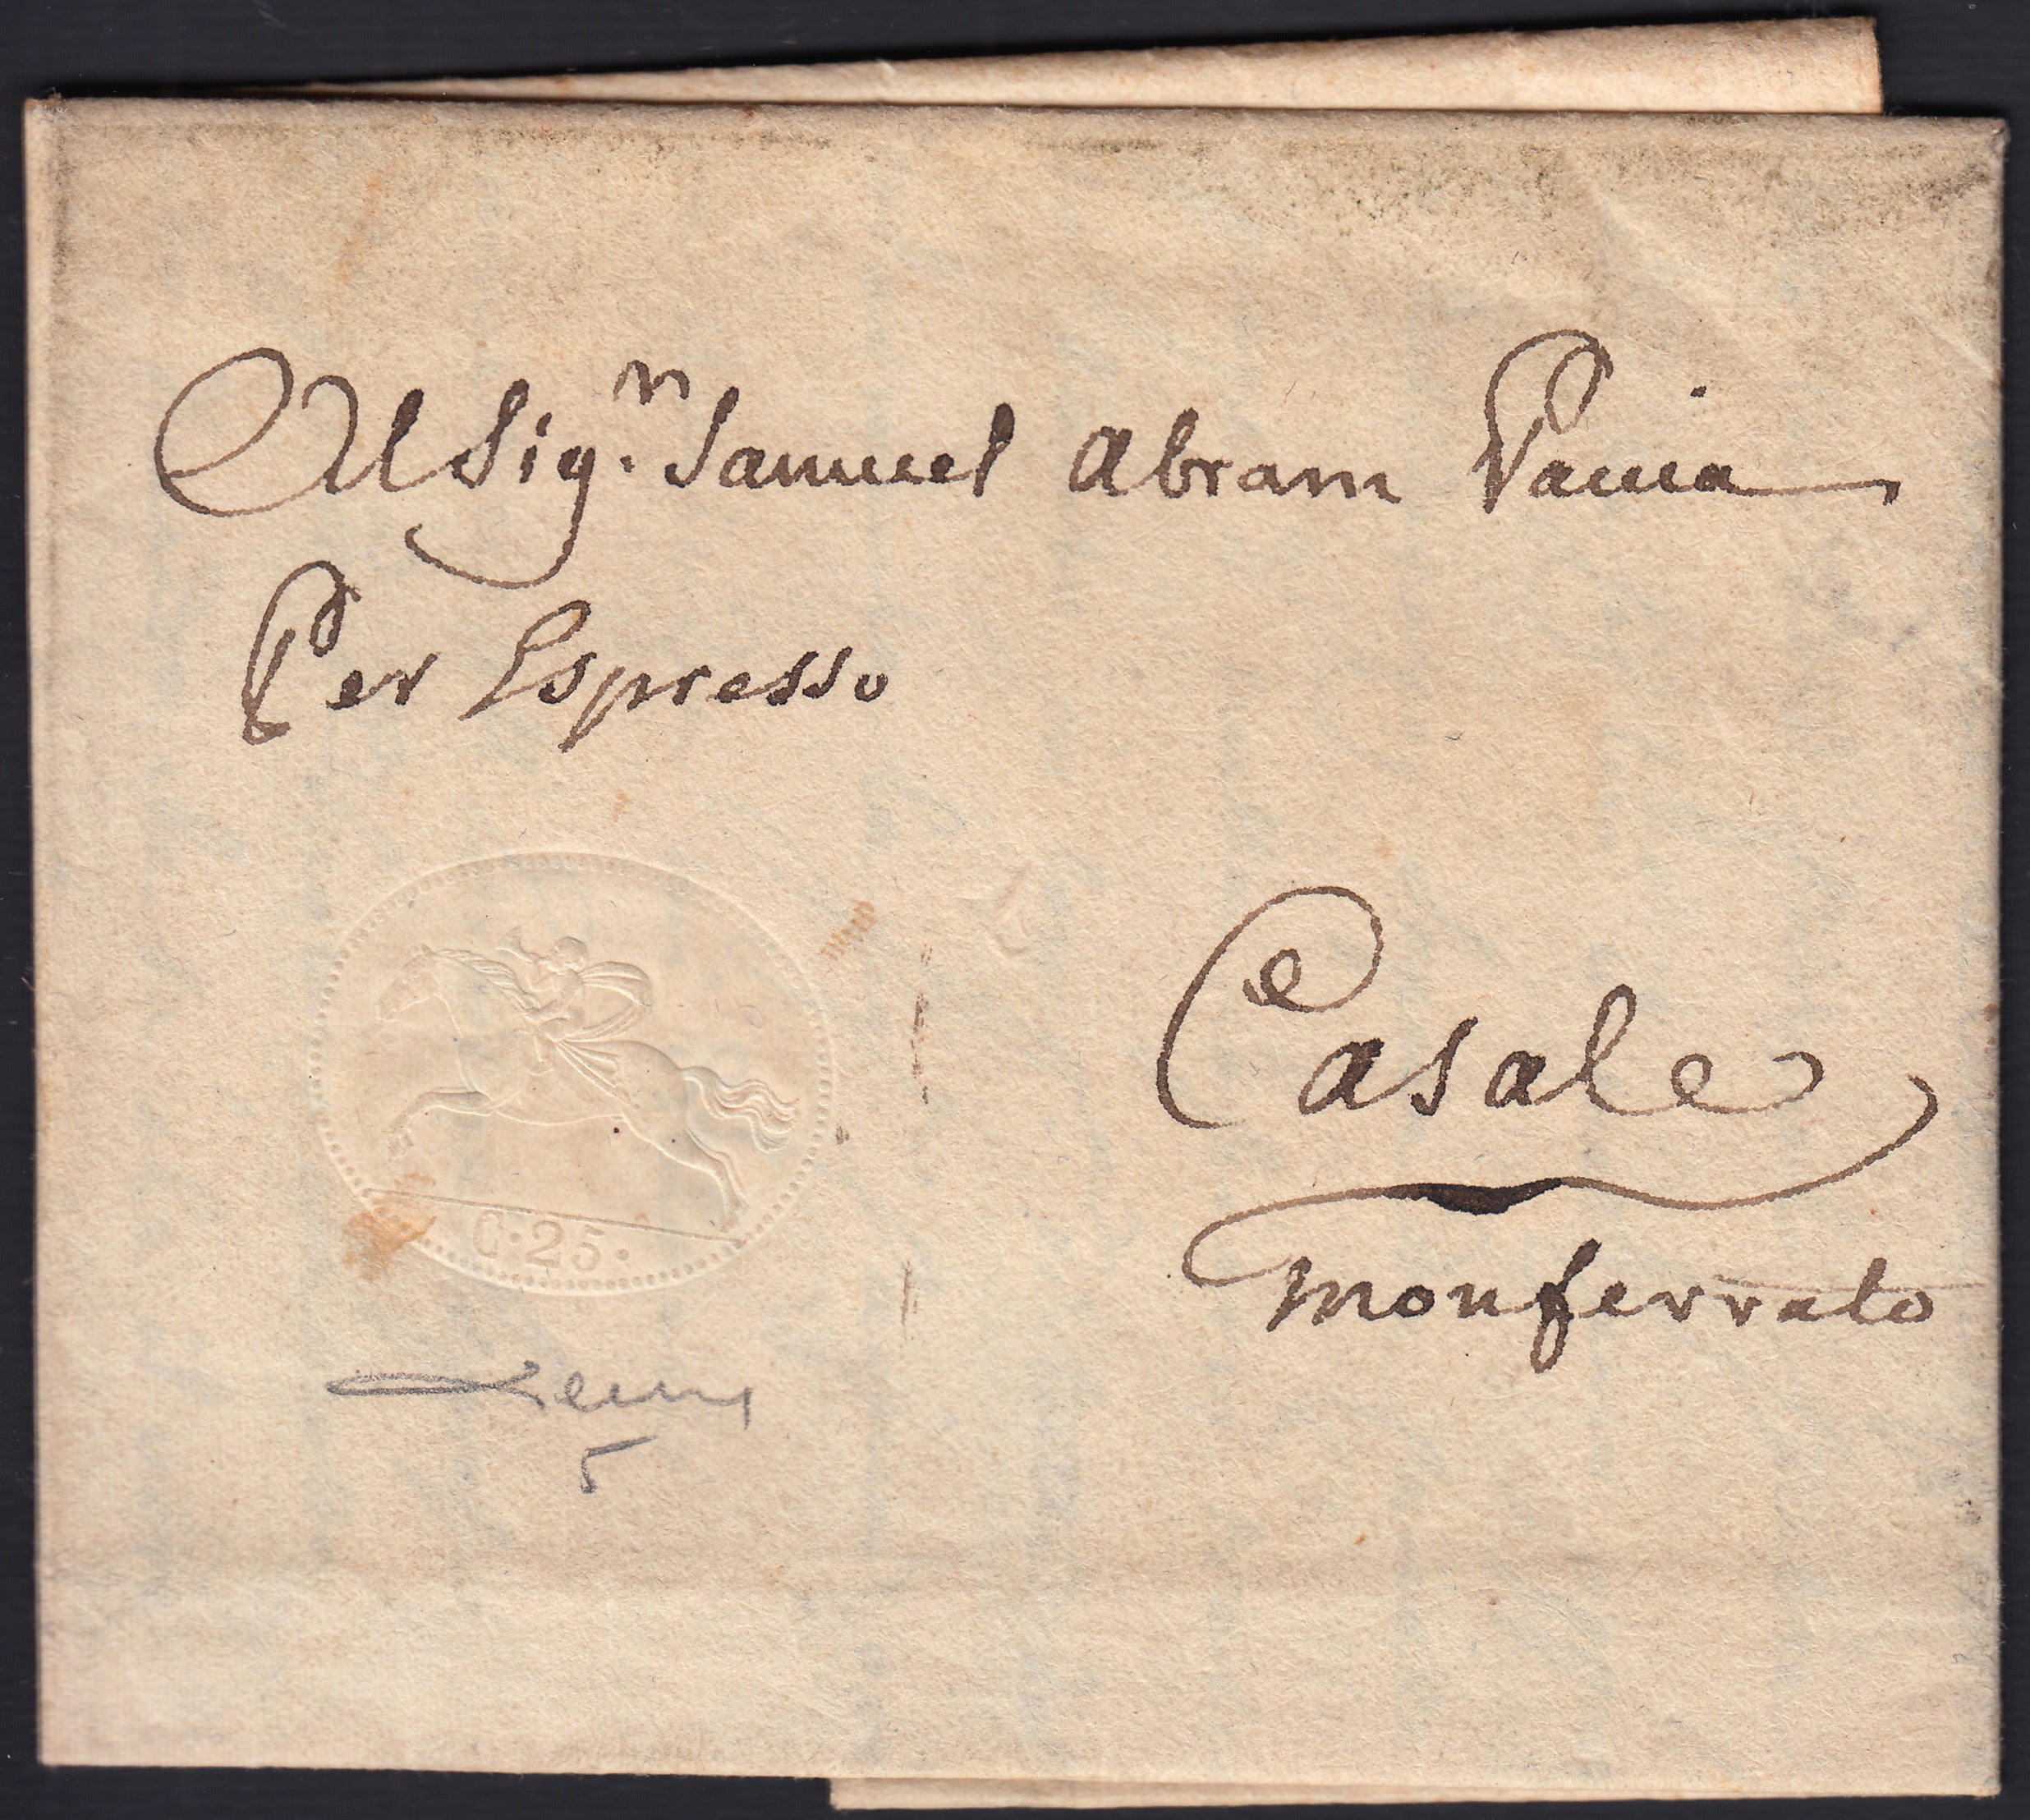 Al Sig.n Samuel Abram Pavia
Per Espresso
Casale
Monferrato
C·25·
5